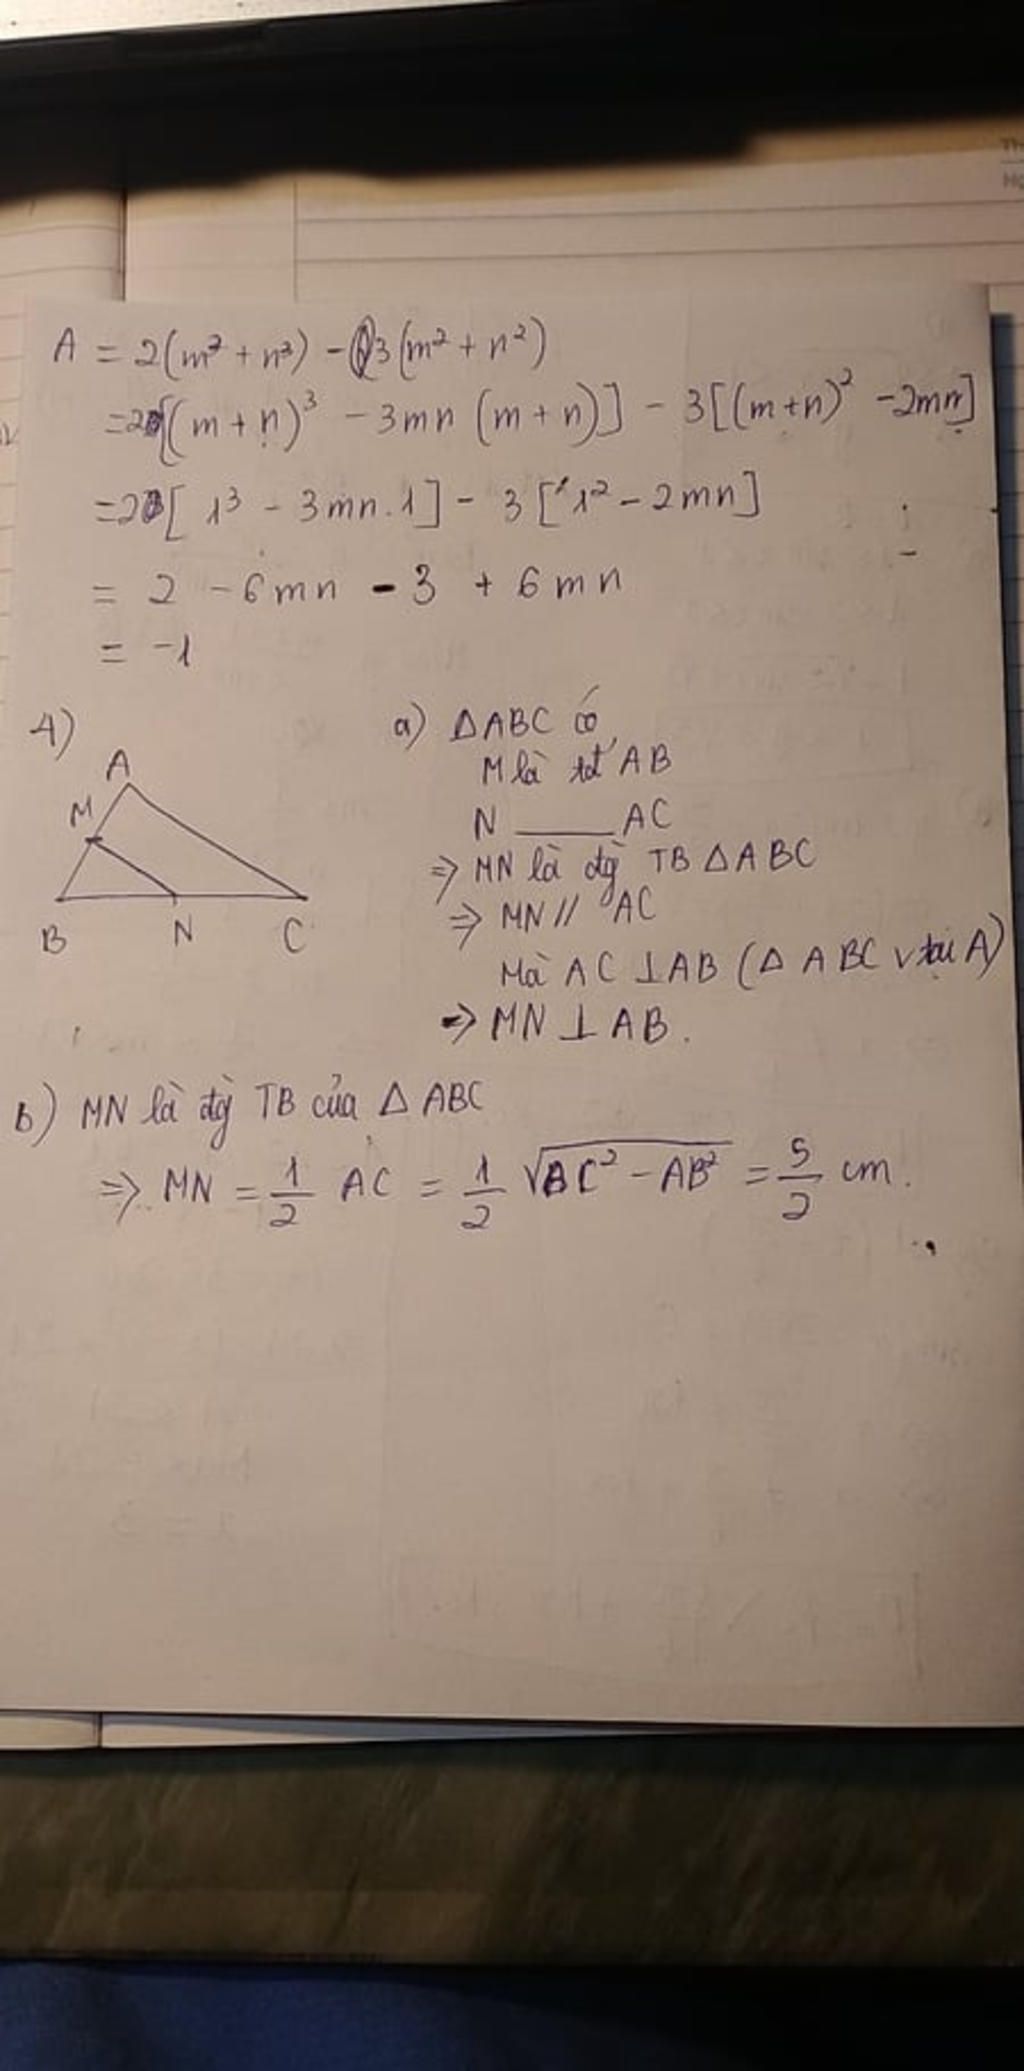 A = 2(m³ + n³) - 3(m² + n²)
= 2[(m + n)³ - 3mn (m + n)] - 3[(m + n)² - 2mn]
= 2[1³ - 3mn.1] - 3[1² - 2mn]
= 2 - 6mn - 3 + 6mn
= -1
4)
A
M
B N C
a) ΔABC có
M là tđ AB
N ____ AC
=> MN là đg TB ΔABC
=> MN // AC
Mà AC ⊥ AB (ΔABC v tại A)
=> MN ⊥ AB.
b) MN là đg TB của ΔABC
=> MN = 1/2 AC = 1/2 √BC² - AB² = 5/2 cm.